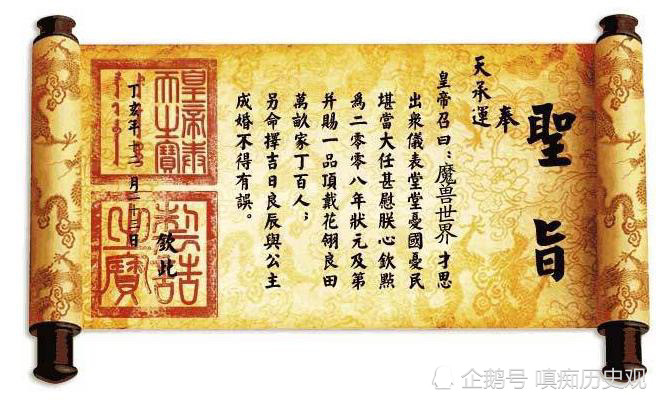 聖旨
奉
天承運
皇帝召曰：魔兽世界才思
出衆儀表堂堂憂國憂民
堪當大任甚慰朕心欽點
爲二零零八年狀元及第
并賜一品頂戴花翎良田
萬畝家丁百人；
另命擇吉日良辰與公主
成婚不得有誤。
欽此
丁亥年十二月二十三日
皇帝奉
天之寶
制誥
之寶
企鹅号 嗔痴历史观